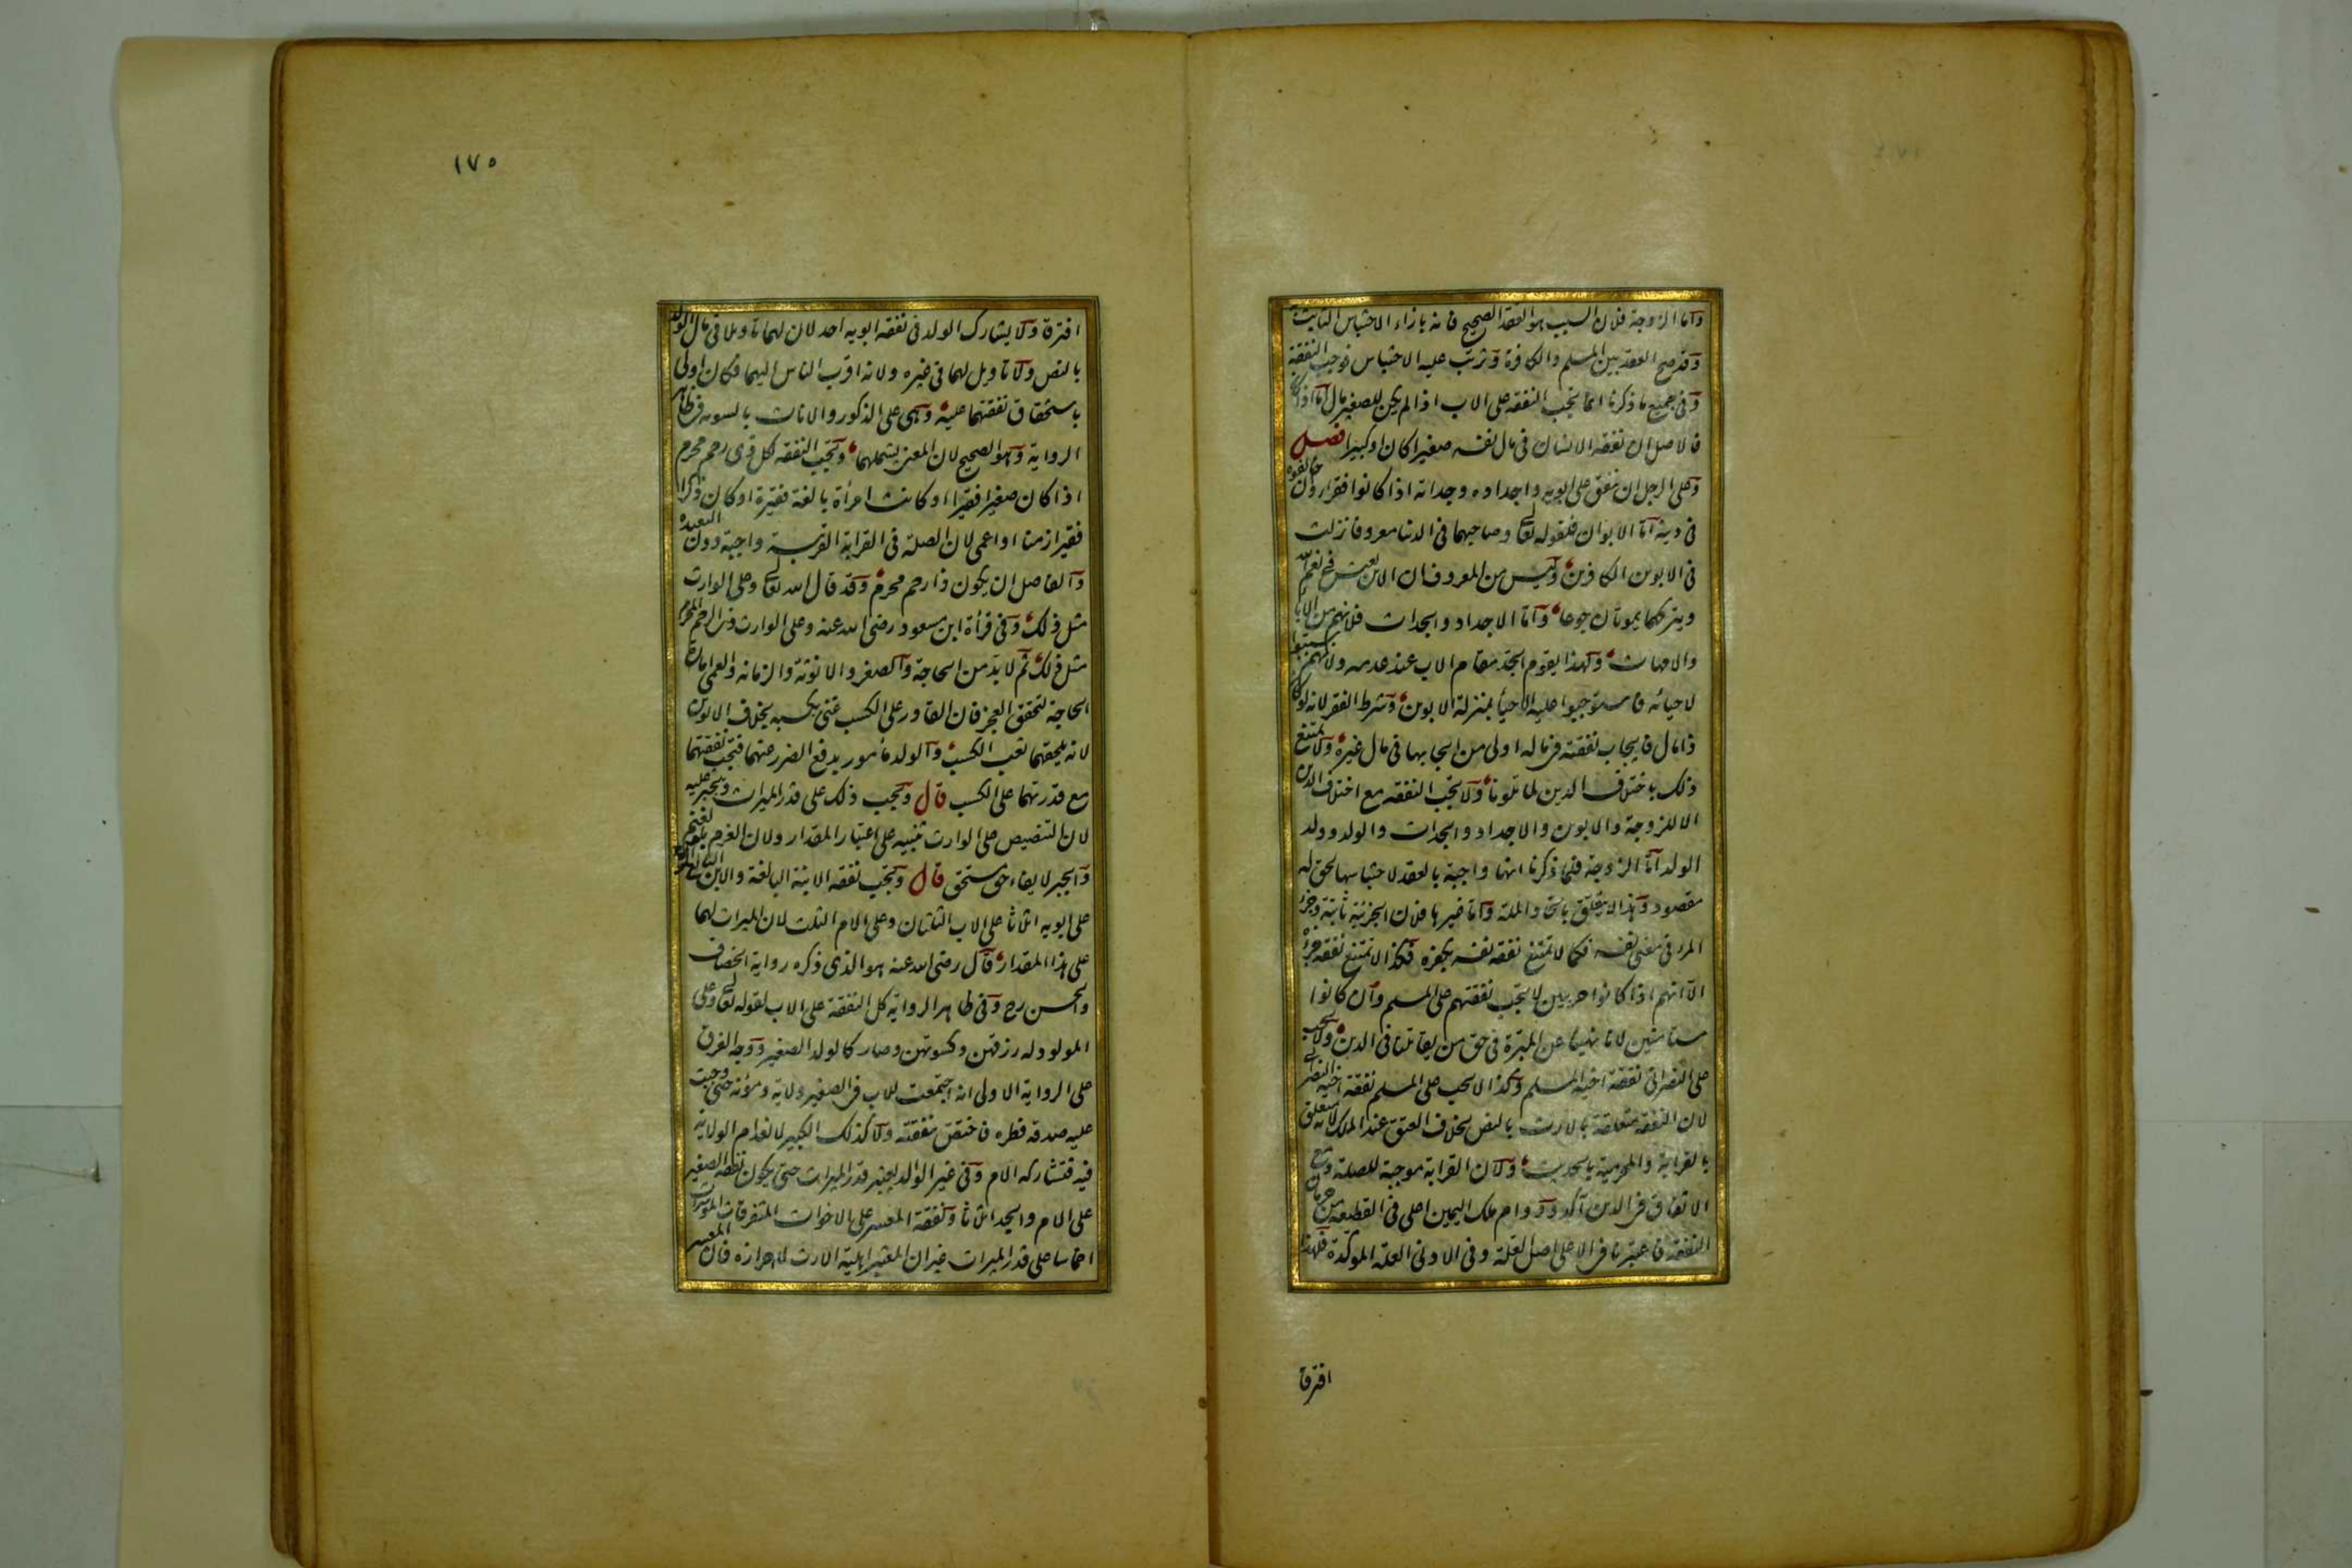 واما الزوجة فلان السبب هو العقد الصحيح فانه بازاء الاحتباس الثابت به
وقد صح العقد بين المسلم والكافرة وترتب عليه الاحتباس فوجبت النفقة
وفى جميع ما ذكرنا انما تجب النفقة على الاب اذا لم يكن للصغير مال اما اذا كان
فالاصل ان نفقة الانسان فى مال نفسه صغيرا كان او كبيرا فصل
وعلى الرجل ان ينفق على ابويه واجداده وجداته اذا كانوا فقراء وان خالفوه
فى دينه اما الابوان فلقوله تعالى وصاحبهما فى الدنيا معروفا نزلت
فى الابوين الكافرين وليس من المعروف ان الابن يعيش فى نعم الله
ويتركهما يموتان جوعا واما الاجداد والجدات فلانهم من الاباء
والامهات ولهذا يقوم الجد مقام الاب عند عدمه ولانهم سببوا
لاحيائه فاستوجبوا عليه الاحياء بمنزلة الابوين وشرط الفقر لانه لو كان
ذا مال فايجاب نفقته فى ماله اولى من ايجابها فى مال غيره ولا يمتنع
ذلك باختلاف الدين لما تلونا ولا تجب النفقة مع اختلاف الدين
الا للزوجة والابوين والاجداد والجدات والولد وولد
الولد اما الزوجة فلما ذكرنا انها واجبة بالعقد لاحتباسها لحق له
مقصود وهذا لا يتعلق باتحاد الملة واما غيرها فلان الجزئية ثابتة وجزء
المرء فى معنى نفسه فكما لا تمتنع نفقة نفسه بكفره فكذا لا تمتنع نفقة جزئه
الا انهم اذا كانوا حربيين لا تجب نفقتهم على المسلم وان كانوا
مستامنين لانا نهينا عن المبرة فى حق من يقاتلنا فى الدين ولا تجب
على النصرانى نفقة اخيه المسلم وكذا لا تجب على المسلم نفقة اخيه النصرانى
لان النفقة متعلقة بالارث بالنص بخلاف العتق عند الملك لانه متعلق
بالقرابة والمحرمية بالحديث ولان القرابة موجبة للصلة ومع
الاتفاق فى الدين آكد ودوام ملك اليمين اعلى فى القطيعة من حرمان
النفقة فاعتبرنا فى الاعلى اصل العلة وفى الادنى العلة المؤكدة فلهذا
افترقا
١٧٥
افترقا ولا يشارك الولد فى نفقة ابويه احد لان لهما تاويلا فى مال الولد
بالنص ولا تاويل لهما فى غيره ولانه اقرب الناس اليهما فكان اولى
باستحقاق نفقتهما عليه وهى على الذكور والاناث بالسوية فى ظاهر
الرواية وهو الصحيح لان المعنى يشملهما وتجب النفقة لكل ذى رحم محرم
اذا كان صغيرا فقيرا او كانت امرأة بالغة فقيرة او كان ذكرا
فقيرا زمنا او اعمى لان الصلة فى القرابة القريبة واجبة دون البعيدة
والفاصل ان يكون ذا رحم محرم وقد قال الله تعالى وعلى الوارث
مثل ذلك وفى قرأة ابن مسعود رضى الله عنه وعلى الوارث ذى الرحم المحرم
مثل ذلك ثم لا بد من الحاجة والصغر والانوثة والزمانة والعمى امارة
الحاجة لتحقق العجز فان القادر على الكسب غنى بكسبه بخلاف الابوين
لانه يلحقهما تعب الكسب والولد مأمور بدفع الضرر عنهما فتجب نفقتهما
مع قدرتهما على الكسب قال وتجب ذلك على قدر الميراث ويجبر عليه
لان التنصيص على الوارث تنبيه على اعتبار المقدار ولان الغرم بالغنم
والجبر لايفاء حق مستحق قال وتجب نفقة الابنة البالغة والابن الزمن
على ابويه اثلاثا على الاب الثلثان وعلى الام الثلث لان الميراث لهما
على هذا المقدار قال رضى الله عنه هو الذى ذكره رواية الخصاف
والحسن رح وفى ظاهر الرواية كل النفقة على الاب لقوله تعالى وعلى
المولود له رزقهن وكسوتهن وصار كالولد الصغير ووجه الفرق
على الرواية الاولى انه اجتمعت للاب فى الصغير ولاية ومؤنة حتى وجبت
عليه صدقة فطره فاختص بنفقته ولا كذلك الكبير لانعدام الولاية
فيه فتشاركه الام وفى غير الوالد يعتبر قدر الميراث حتى يكون نفقة الصغير
على الام والجد اثلاثا ونفقة المعسر على الاخوات المتفرقات الموسرات
اخماسا على قدر الميراث غير ان المعتبر اهلية الارث لا احرازه فان المعسر